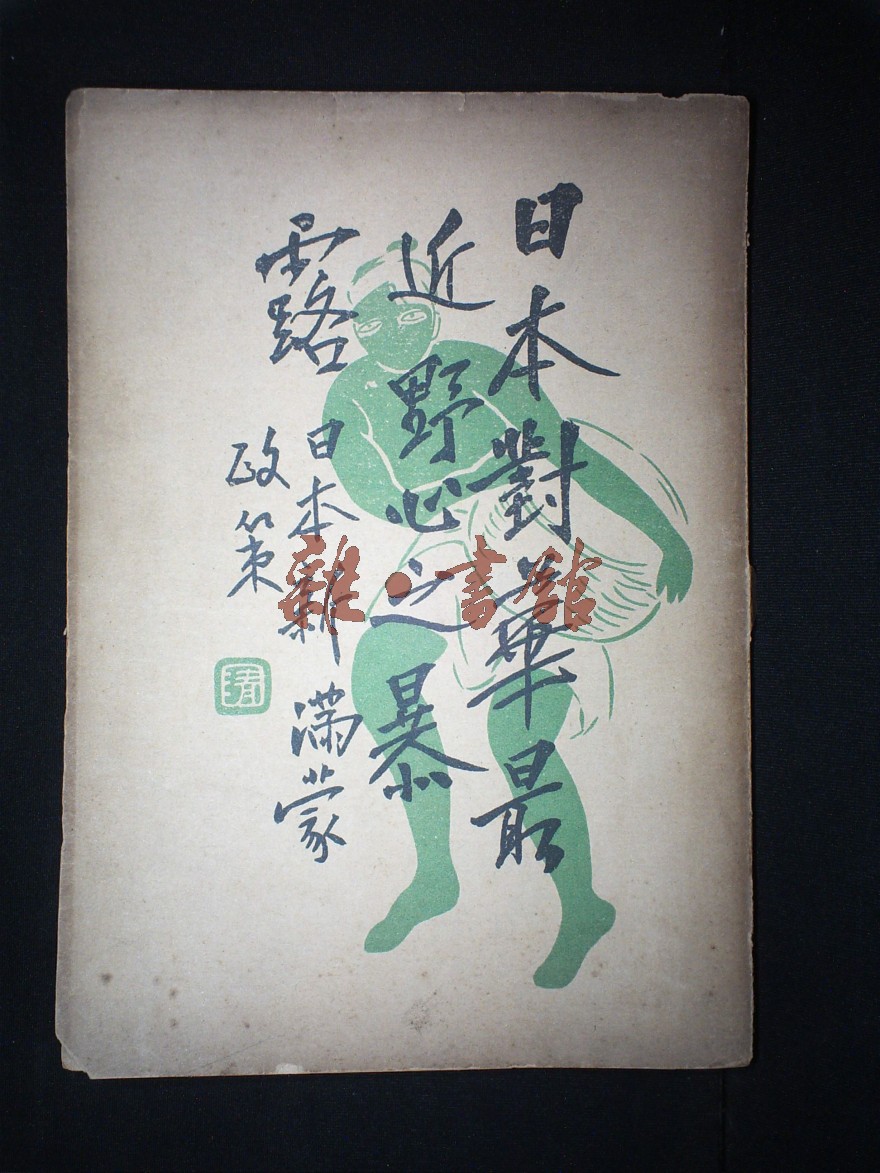 日本對華最
近野心之暴
露
日本新滿蒙
政策
雜·書館